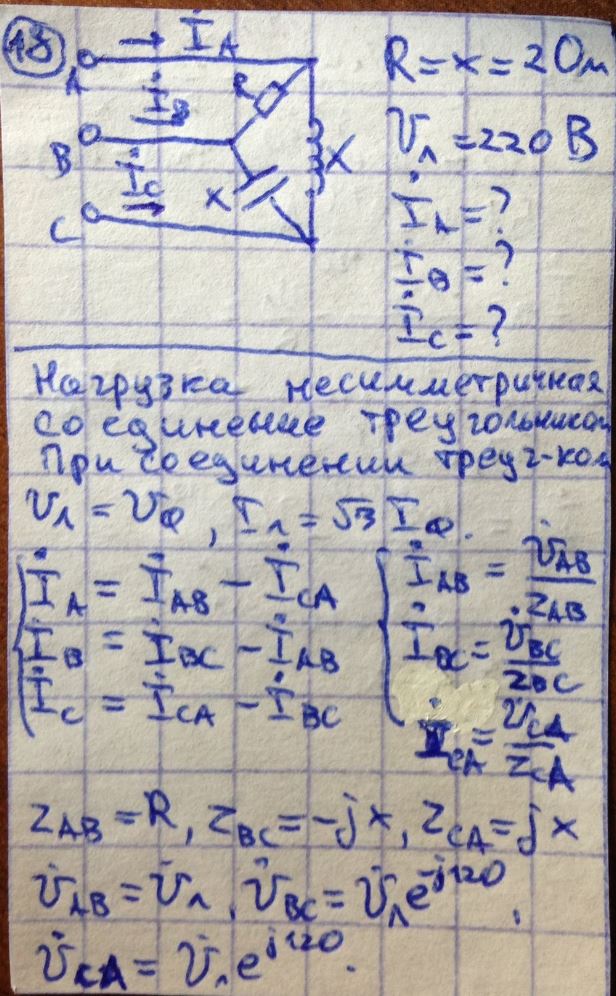 18
A İ_A
R
B İ_B
C İ_C
X
X
R = x = 2 Ом
U_Л = 220 В
İ_A = ?
İ_B = ?
İ_C = ?
Нагрузка несимметричная
соединение треугольником
При соединении треуг-ком
U_Л = U_Ф, I_Л = √3 I_Ф.
İ_A = İ_AB - İ_CA
İ_B = İ_BC - İ_AB
İ_C = İ_CA - İ_BC
İ_AB = U̇_AB / Z_AB
İ_BC = U̇_BC / Z_BC
İ_CA = U̇_CA / Z_CA
Z_AB = R, Z_BC = -jx, Z_CA = jx
U̇_AB = U̇_Л, U̇_BC = U̇_Л e^-j120,
U̇_CA = U̇_Л e^j120.